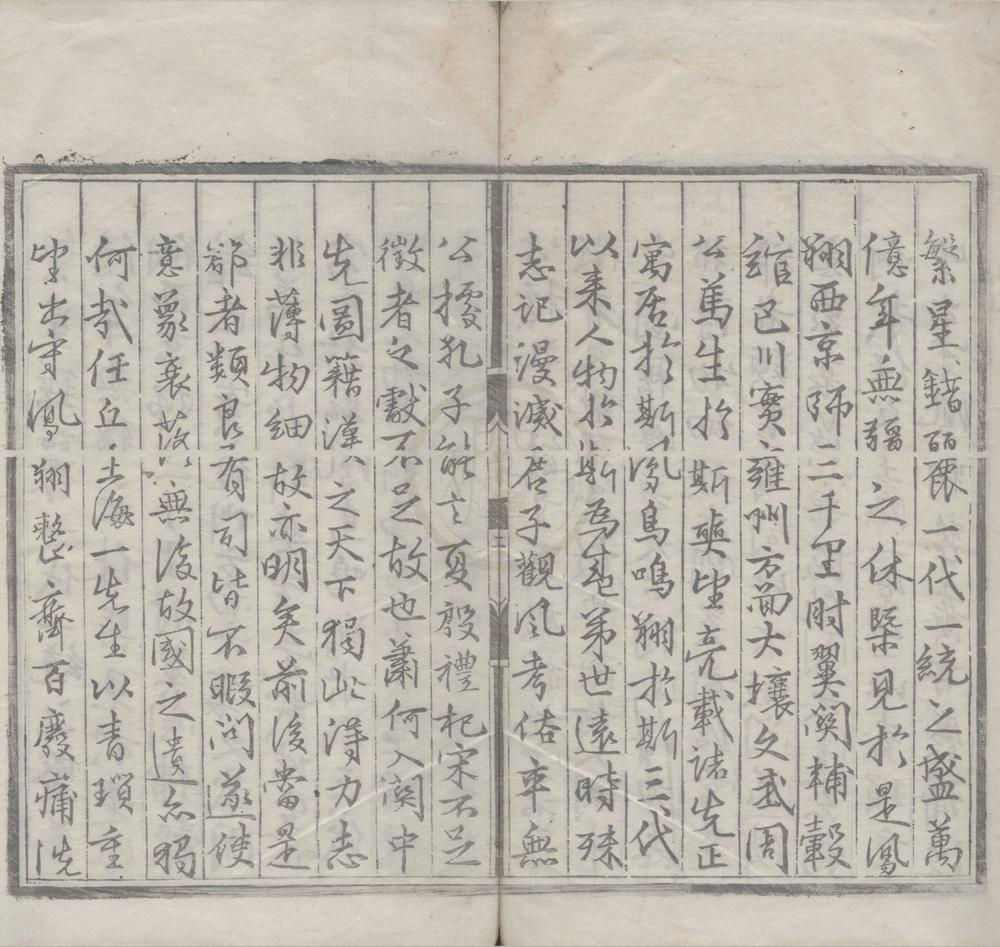 繁星錯麗一代一統之盛萬
億年無疆之休槩見於是鳳
翔西京師三千里肘翼関輔轂
綰巴川實雍州方面大壤文武周
公篤生於斯奭望亮載諸先正
寓居於斯鳳鳥鳴翔於斯三代
以来人物於斯為甚第世遠時殊
志記漫滅君子觀風考俗卒無
公㨿孔子能言夏殷禮杞宋不足
徵者文獻不足故也蕭何入関中
先圖籍漢之天下獨此得力志
非薄物細故亦明矣前後當是
郡者類良有司皆不暇问遂使
意象衰落無後故國之遺亦獨
何㢤任丘王海一先生以青瑣重
望出守鳳翔整齊百廢痛洗
三